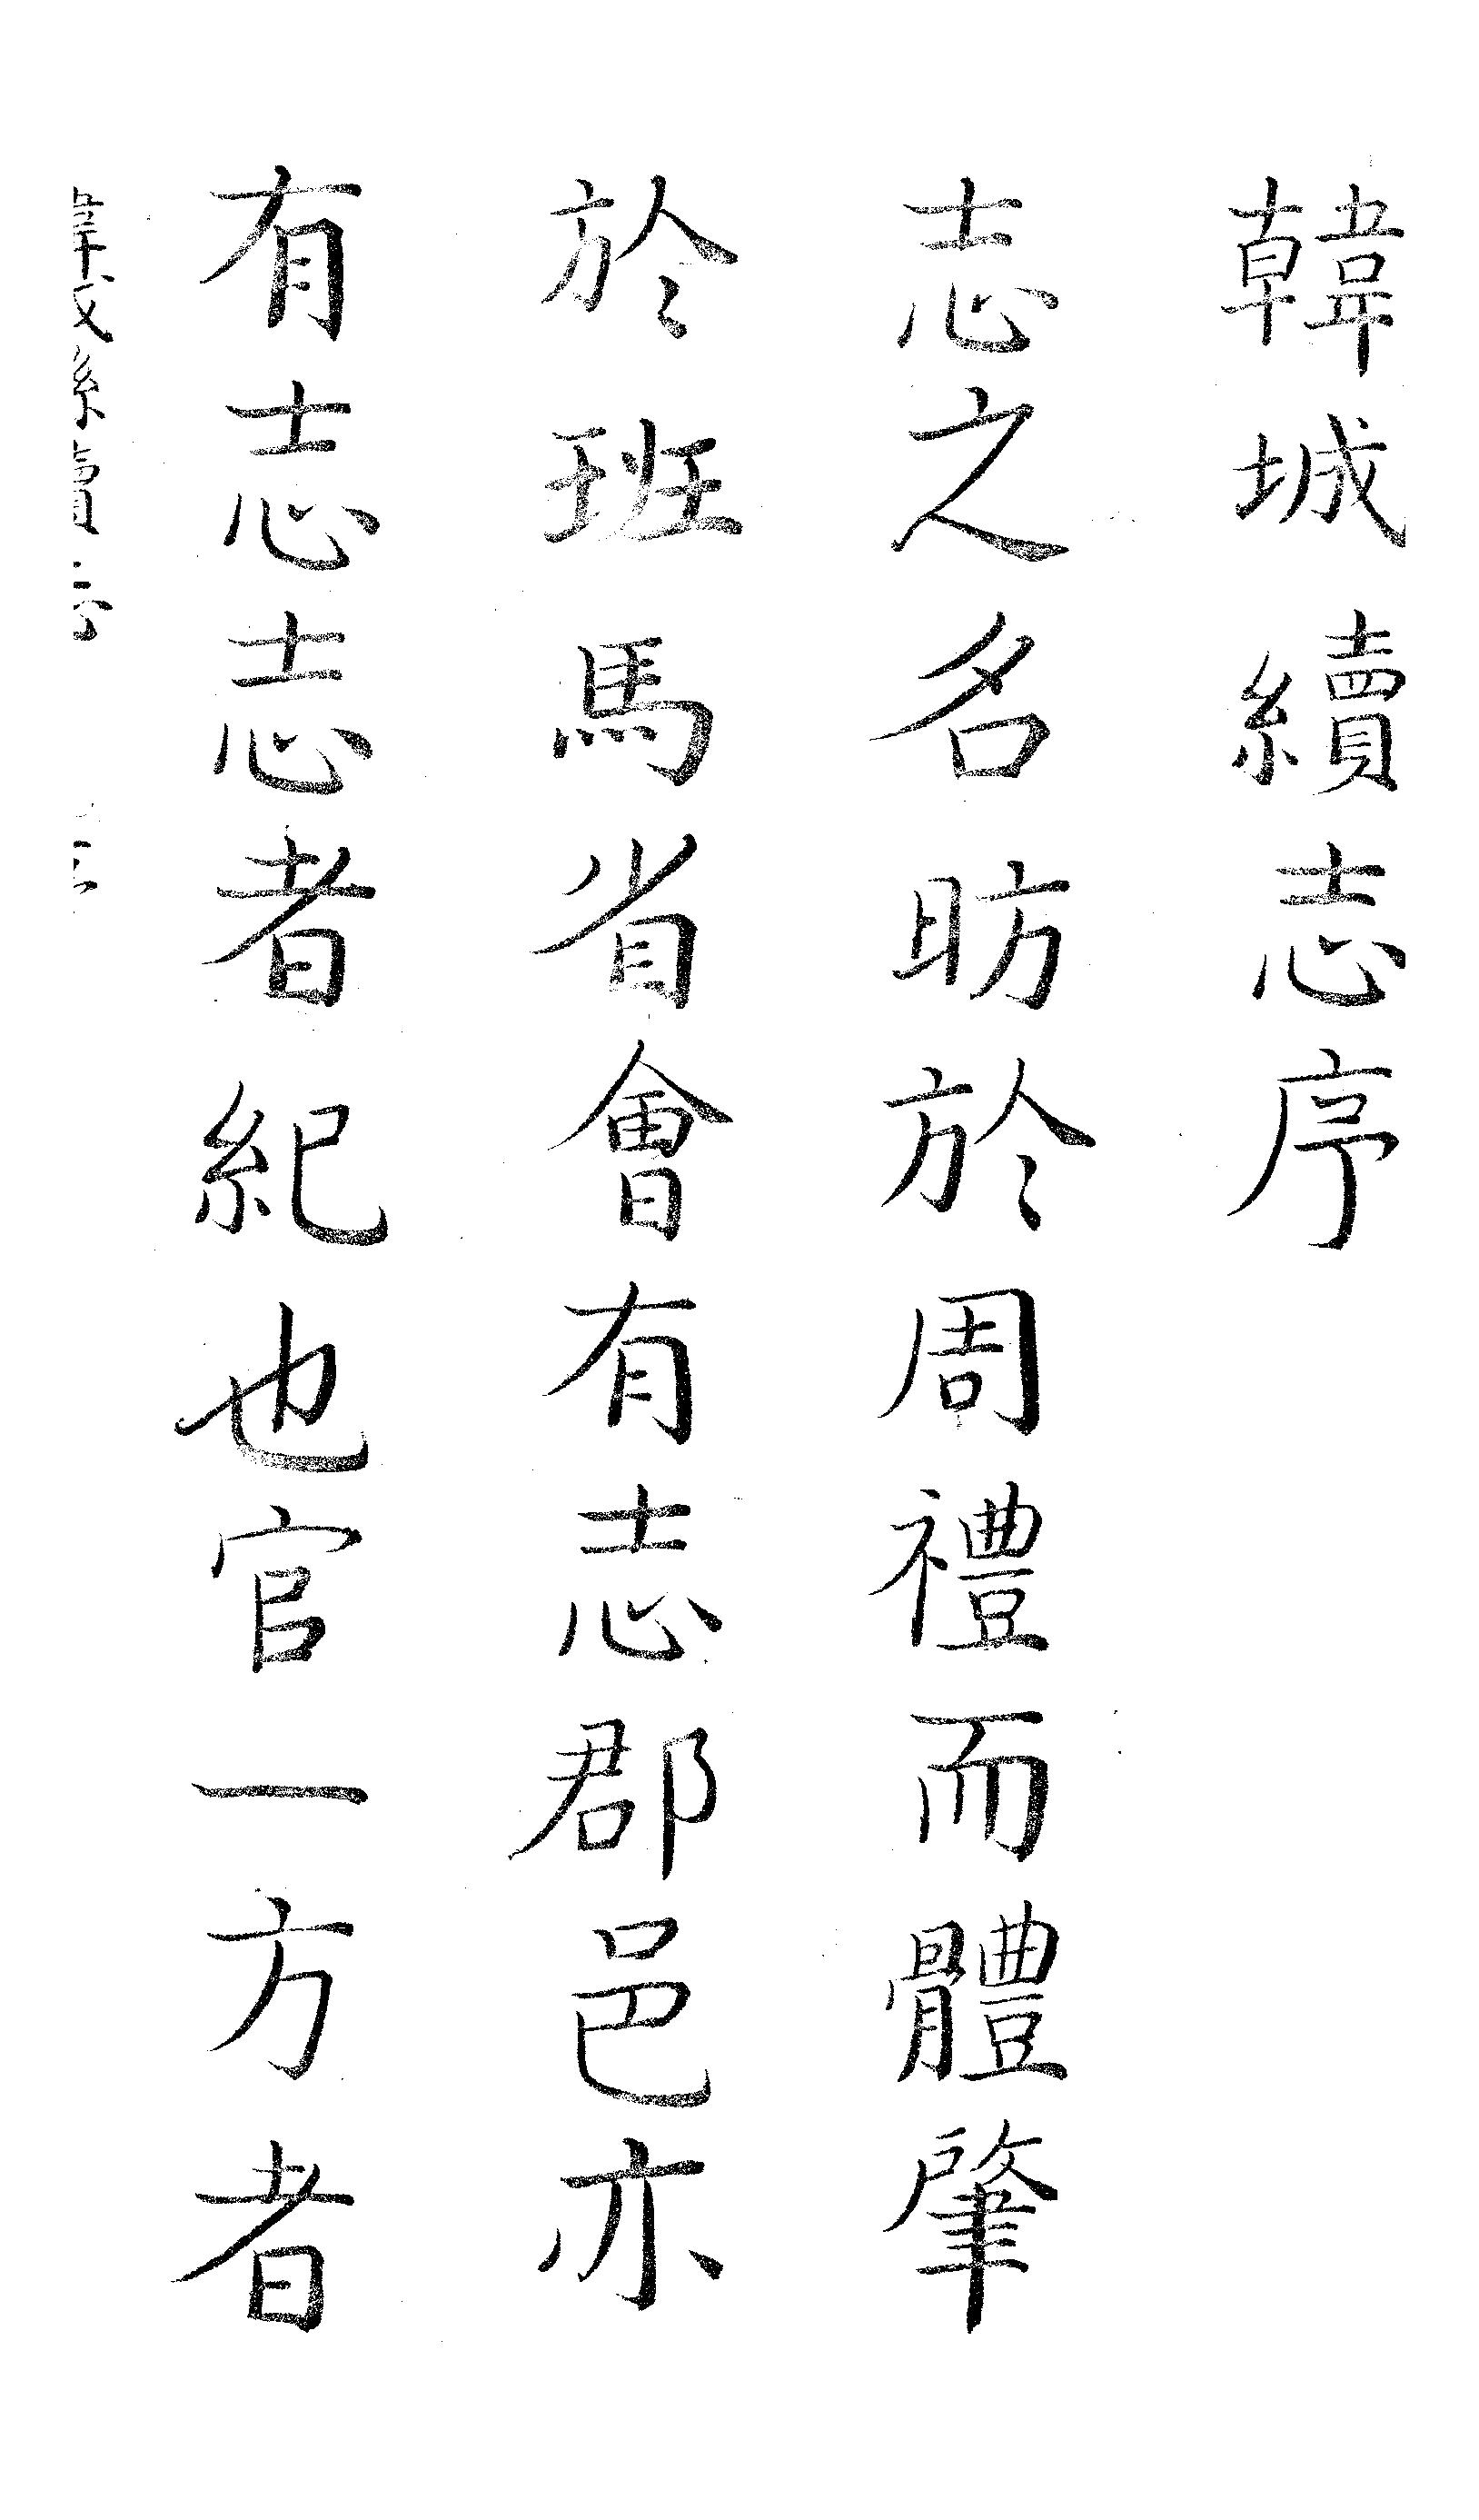 韓城續志序
志之名昉於周禮而體肇
於班馬省會有志郡邑亦
有志志者紀也官一方者